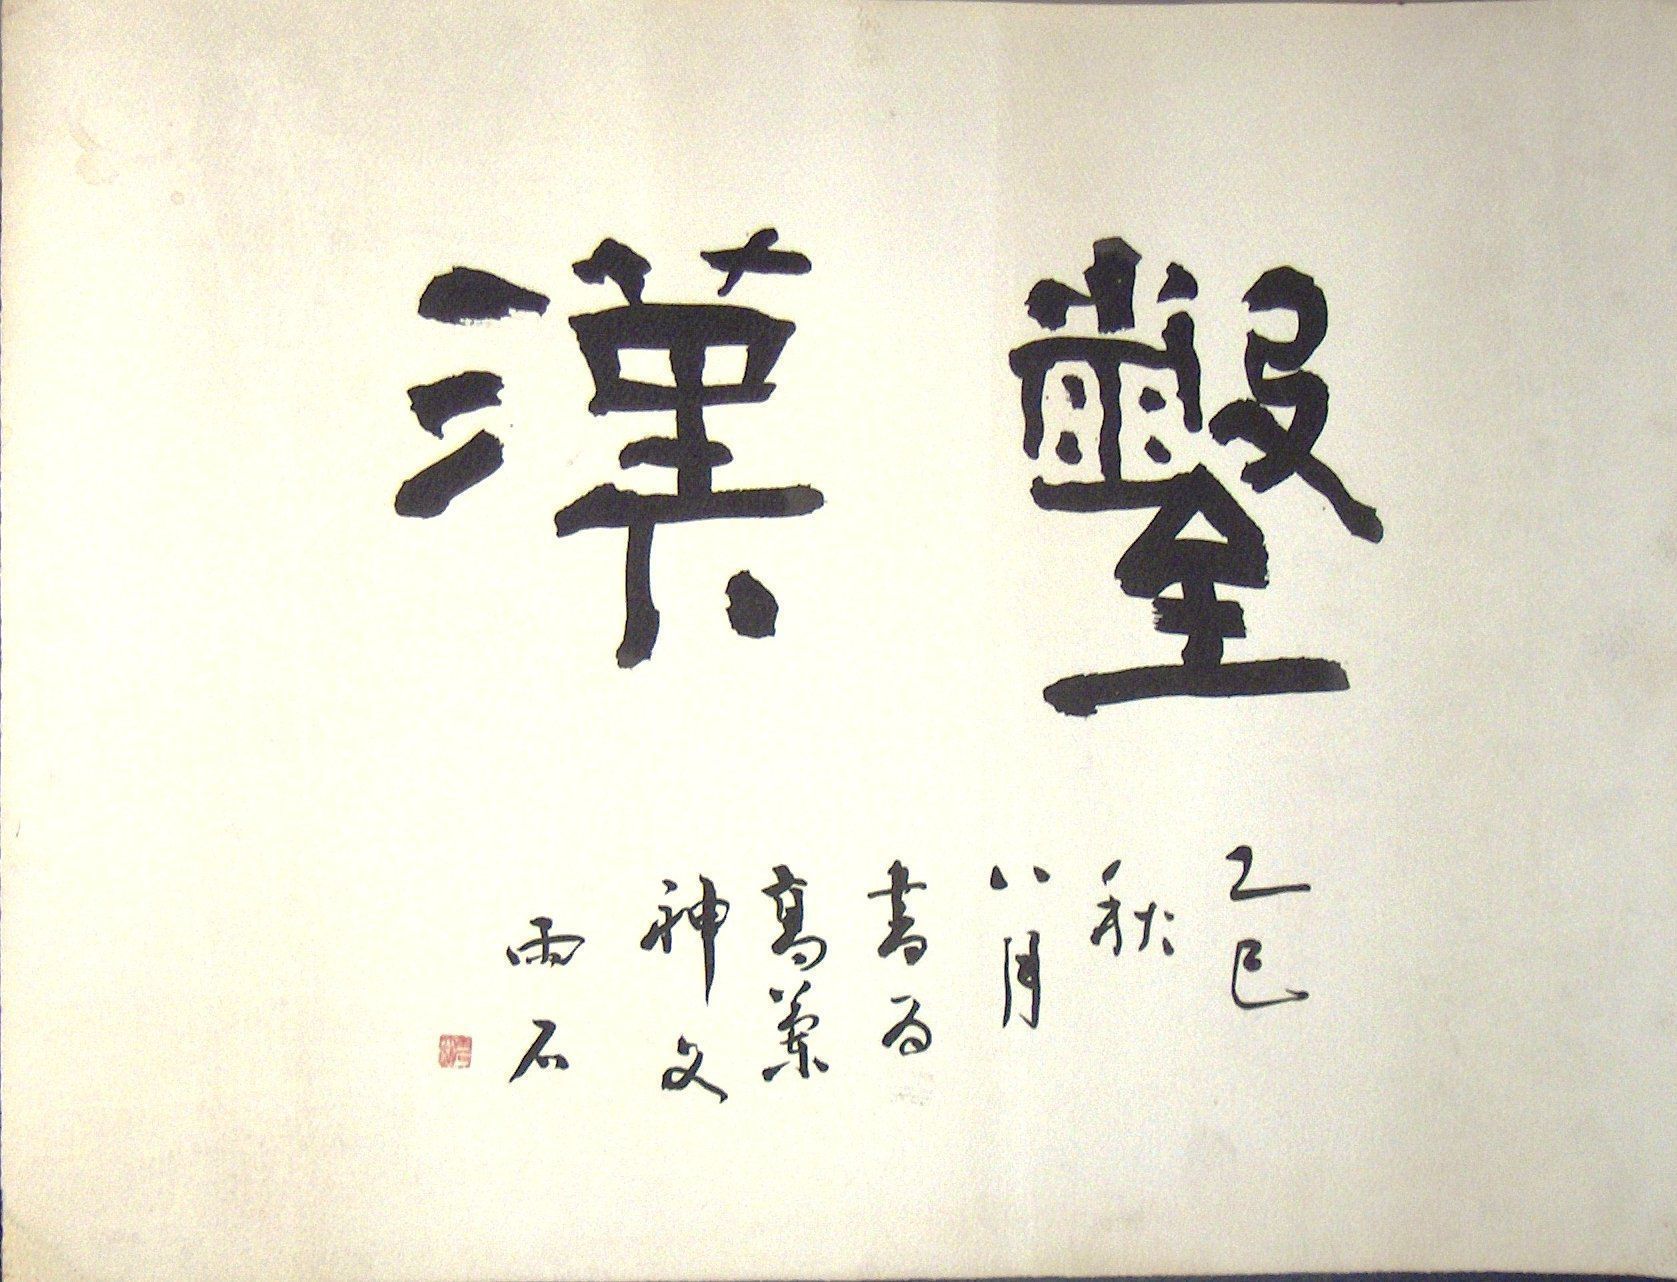 鑿漢
乙巳
秋
八月
書為
高
神父
雨石